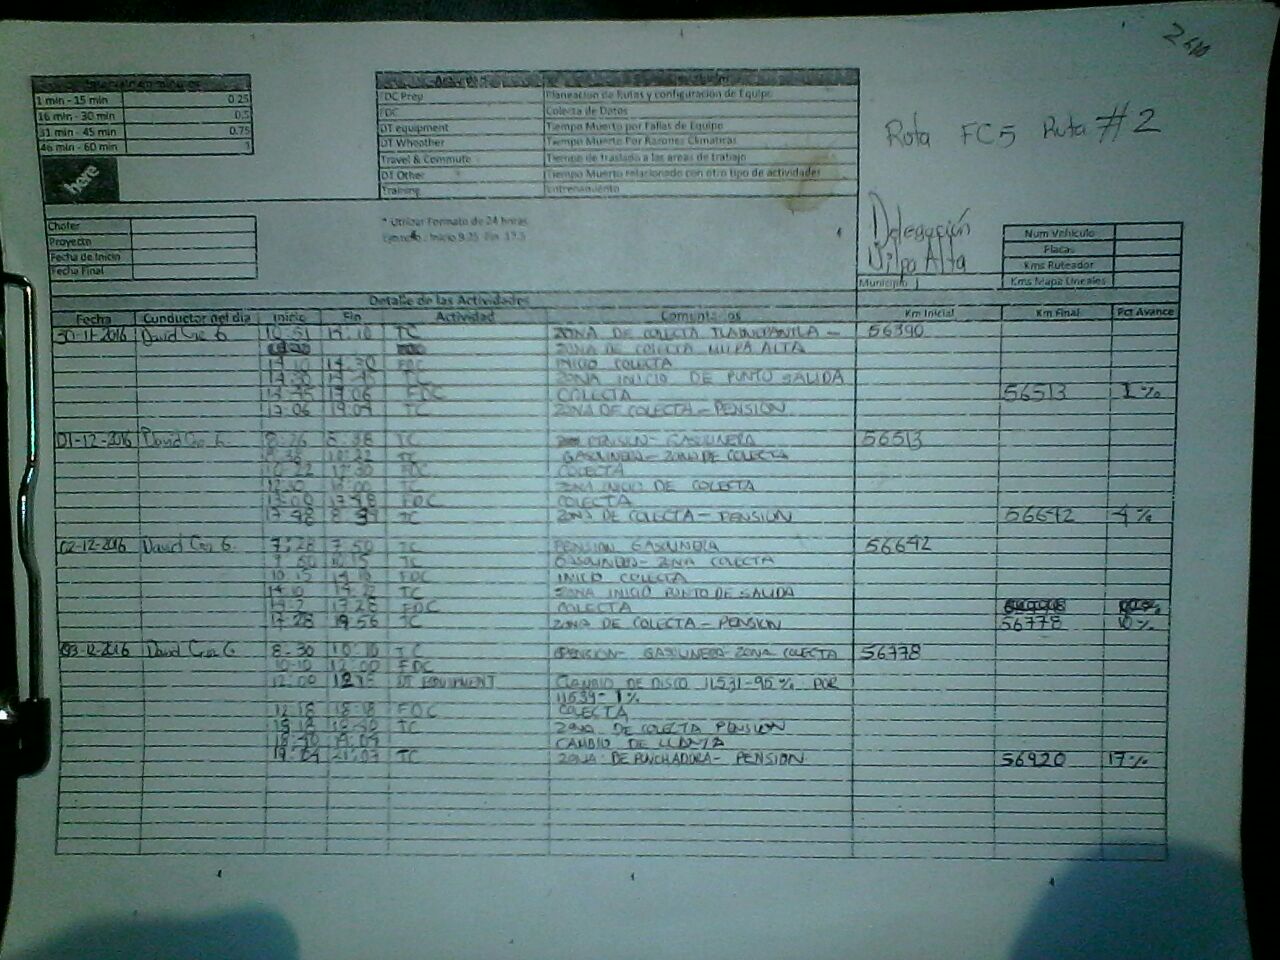 2
1 min - 15 min 0.25
16 min - 30 min 0.5
31 min - 45 min 0.75
46 min - 60 min 1
here
FDC Prep Planeacion de Rutas y configuracion de Equipo
FDC Colecta de Datos
DT equipment Tiempo Muerto por Fallas de Equipo
DT Wheather Tiempo Muerto Por Razones Climaticas
Travel & Commute Tiempo de traslado a las areas de trabajo
DT Other Tiempo Muerto relacionado con otro tipo de actividades
Training Entrenamiento
Ruta FC5 Ruta #2
Chofer
Proyecto
Fecha de Inicio
Fecha Final
* Utilizar Formato de 24 horas
Inicio 9.25 Fin 17.5
Delegación
Milpa Alta
Municipio
Num Vehiculo
Placas
Kms Ruteador
Kms Mapa Lineales
Detalle de las Actividades
Fecha Conductor del dia Inicio Fin Actividad Comentarios Km Inicial Km Final Pct Avance
30-11-2016 David Cruz G. 10:51 14:10 TC ZONA DE COLECTA TLALNEPANTLA - 56390
ZONA DE COLECTA MILPA ALTA
14:10 14:30 FDC INICIO COLECTA
14:30 TC ZONA INICIO DE PUNTO SALIDA
17:06 FDC COLECTA 56513 1%
17:06 19:04 TC ZONA DE COLECTA - PENSION
01-12-2016 David Cruz G. 8:26 8:38 TC PENSION - GASOLINERA 56513
8:38 10:22 TC GASOLINERA - ZONA DE COLECTA
10:22 FDC COLECTA
TC ZONA INICIO DE COLECTA
13:00 17:48 FDC COLECTA
17:48 TC ZONA DE COLECTA - PENSION 56642 4%
02-12-2016 David Cruz G. 7:28 7:50 TC PENSION GASOLINERA 56642
7:50 10:15 TC GASOLINERA - ZONA COLECTA
10:15 14:10 FDC INICIO COLECTA
14:10 TC ZONA INICIO PUNTO DE SALIDA
17:28 FDC COLECTA
17:28 19:56 TC ZONA DE COLECTA - PENSION 56778 10%
03-12-2016 David Cruz G. 8:30 10:10 TC PENSION - GASOLINERA - ZONA COLECTA 56778
10:10 12:00 FDC
12:00 12:18 DT EQUIPMENT CAMBIO DE DISCO 11531-95% POR
11539 - 1%
12:18 18:18 FDC COLECTA
18:18 TC ZONA DE COLECTA PENSION
19:04 CAMBIO DE LLANTA
19:04 21:07 TC ZONA DE PONCHADURA - PENSION 56920 17%